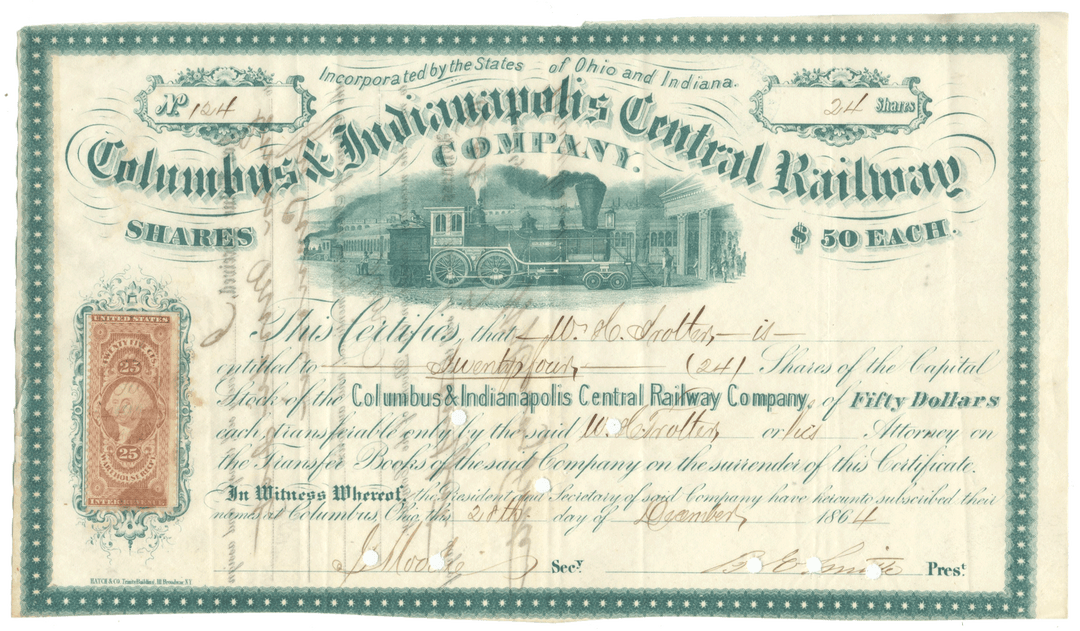 Incorporated by the States of Ohio and Indiana.
No 124
24 Shares
Columbus & Indianapolis Central Railway
COMPANY.
SHARES
$ 50 EACH.
This Certifies, that W. H. Trotter, is
entitled to Twenty four, (24) Shares of the Capital
Stock of the Columbus & Indianapolis Central Railway Company, of Fifty Dollars
each, transferable only by the said W. H. Trotter, or his Attorney on
the Transfer Books of the said Company on the surrender of this Certificate.
In Witness Whereof, the President and Secretary of said Company have hereunto subscribed their
names at Columbus, Ohio, this 28th day of December, 1864
Secy.
B. E. Smith Prest.
HATCH & Co. Trinity Building, 111 Broadway N.Y.
UNITED STATES
TWENTY FIVE CTS.
25
25
INTER. REVENUE